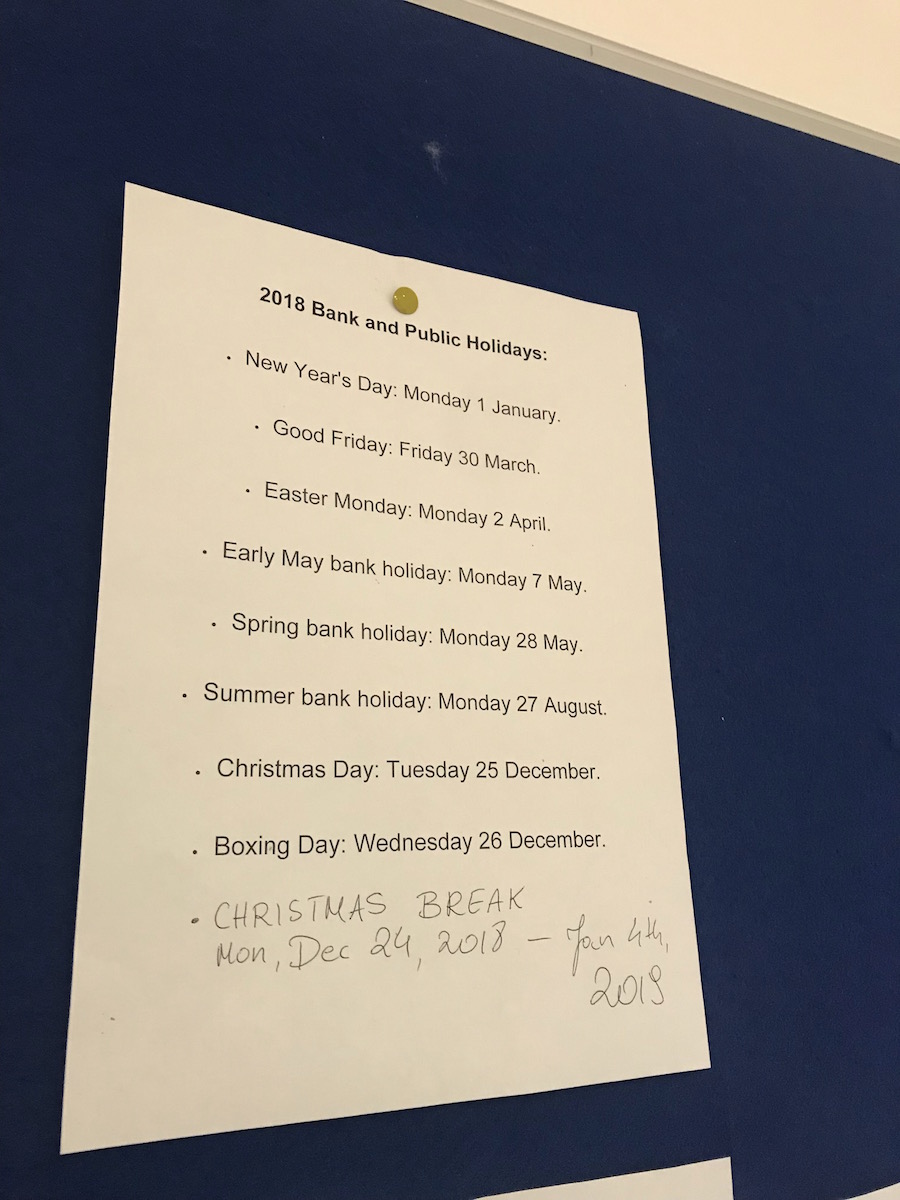 2018 Bank and Public Holidays:
· New Year's Day: Monday 1 January.
· Good Friday: Friday 30 March.
· Easter Monday: Monday 2 April.
· Early May bank holiday: Monday 7 May.
· Spring bank holiday: Monday 28 May.
· Summer bank holiday: Monday 27 August.
· Christmas Day: Tuesday 25 December.
· Boxing Day: Wednesday 26 December.
· CHRISTMAS BREAK
Mon, Dec 24, 2018 – Jan 4th,
2019